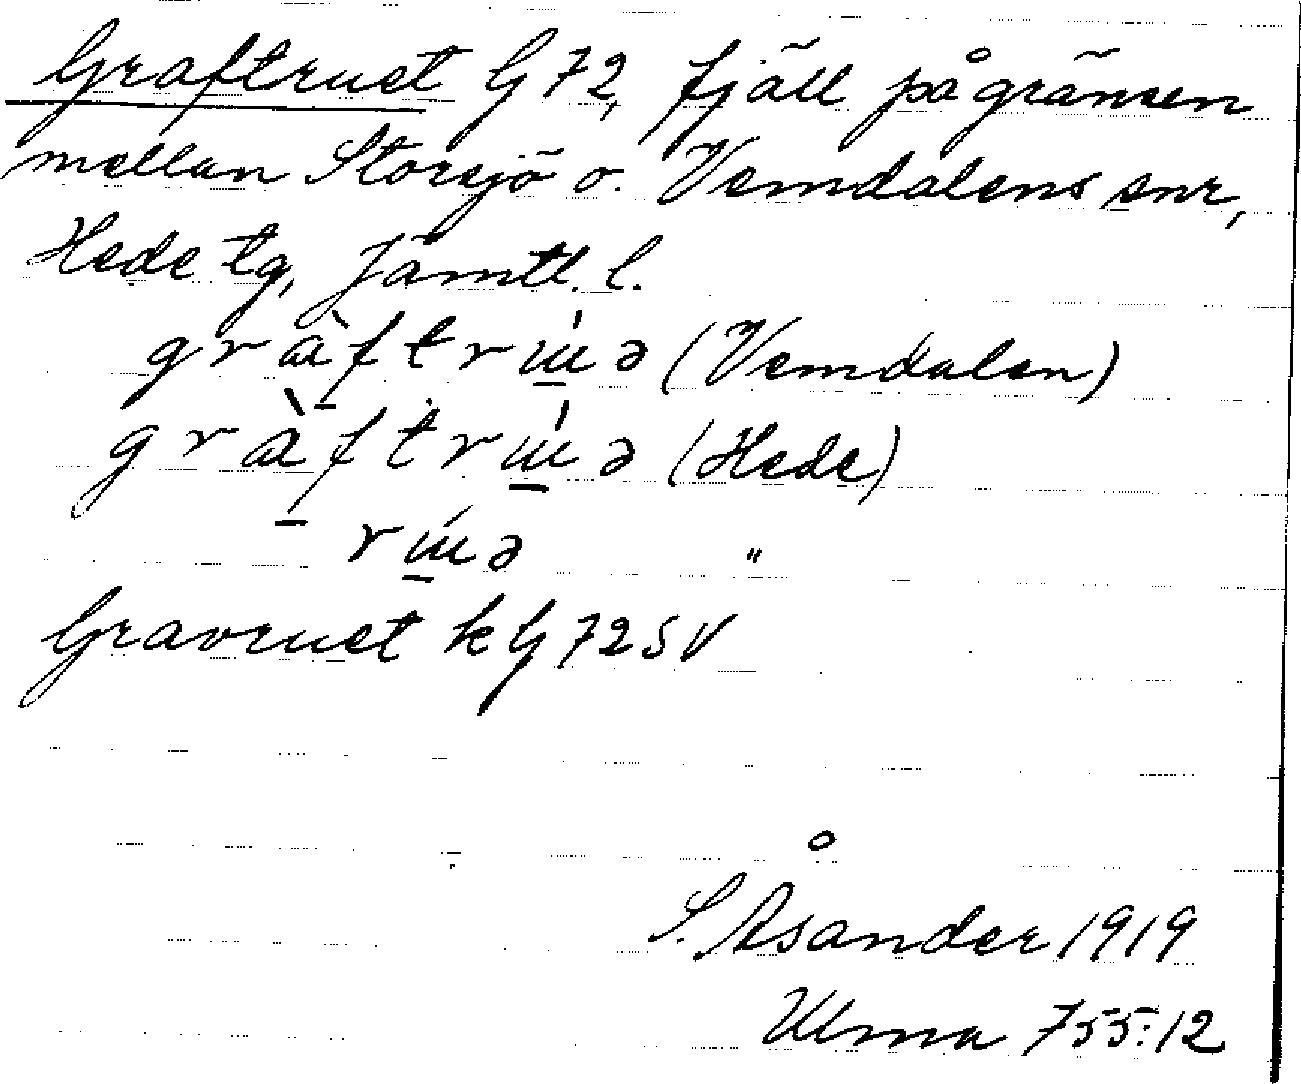 Graftruet G 72, fjäll på gränsen
mellan Storsjö o. Vemdalens snr,
Hede tg, Jämtl. l.
gràftrɯ́ə (Vemdalen)
gràftrɯ́ə (Hede)
rɯ́ə "
Gravruet k G 72 SV
S. Åsander 1919
Ulma 755:12